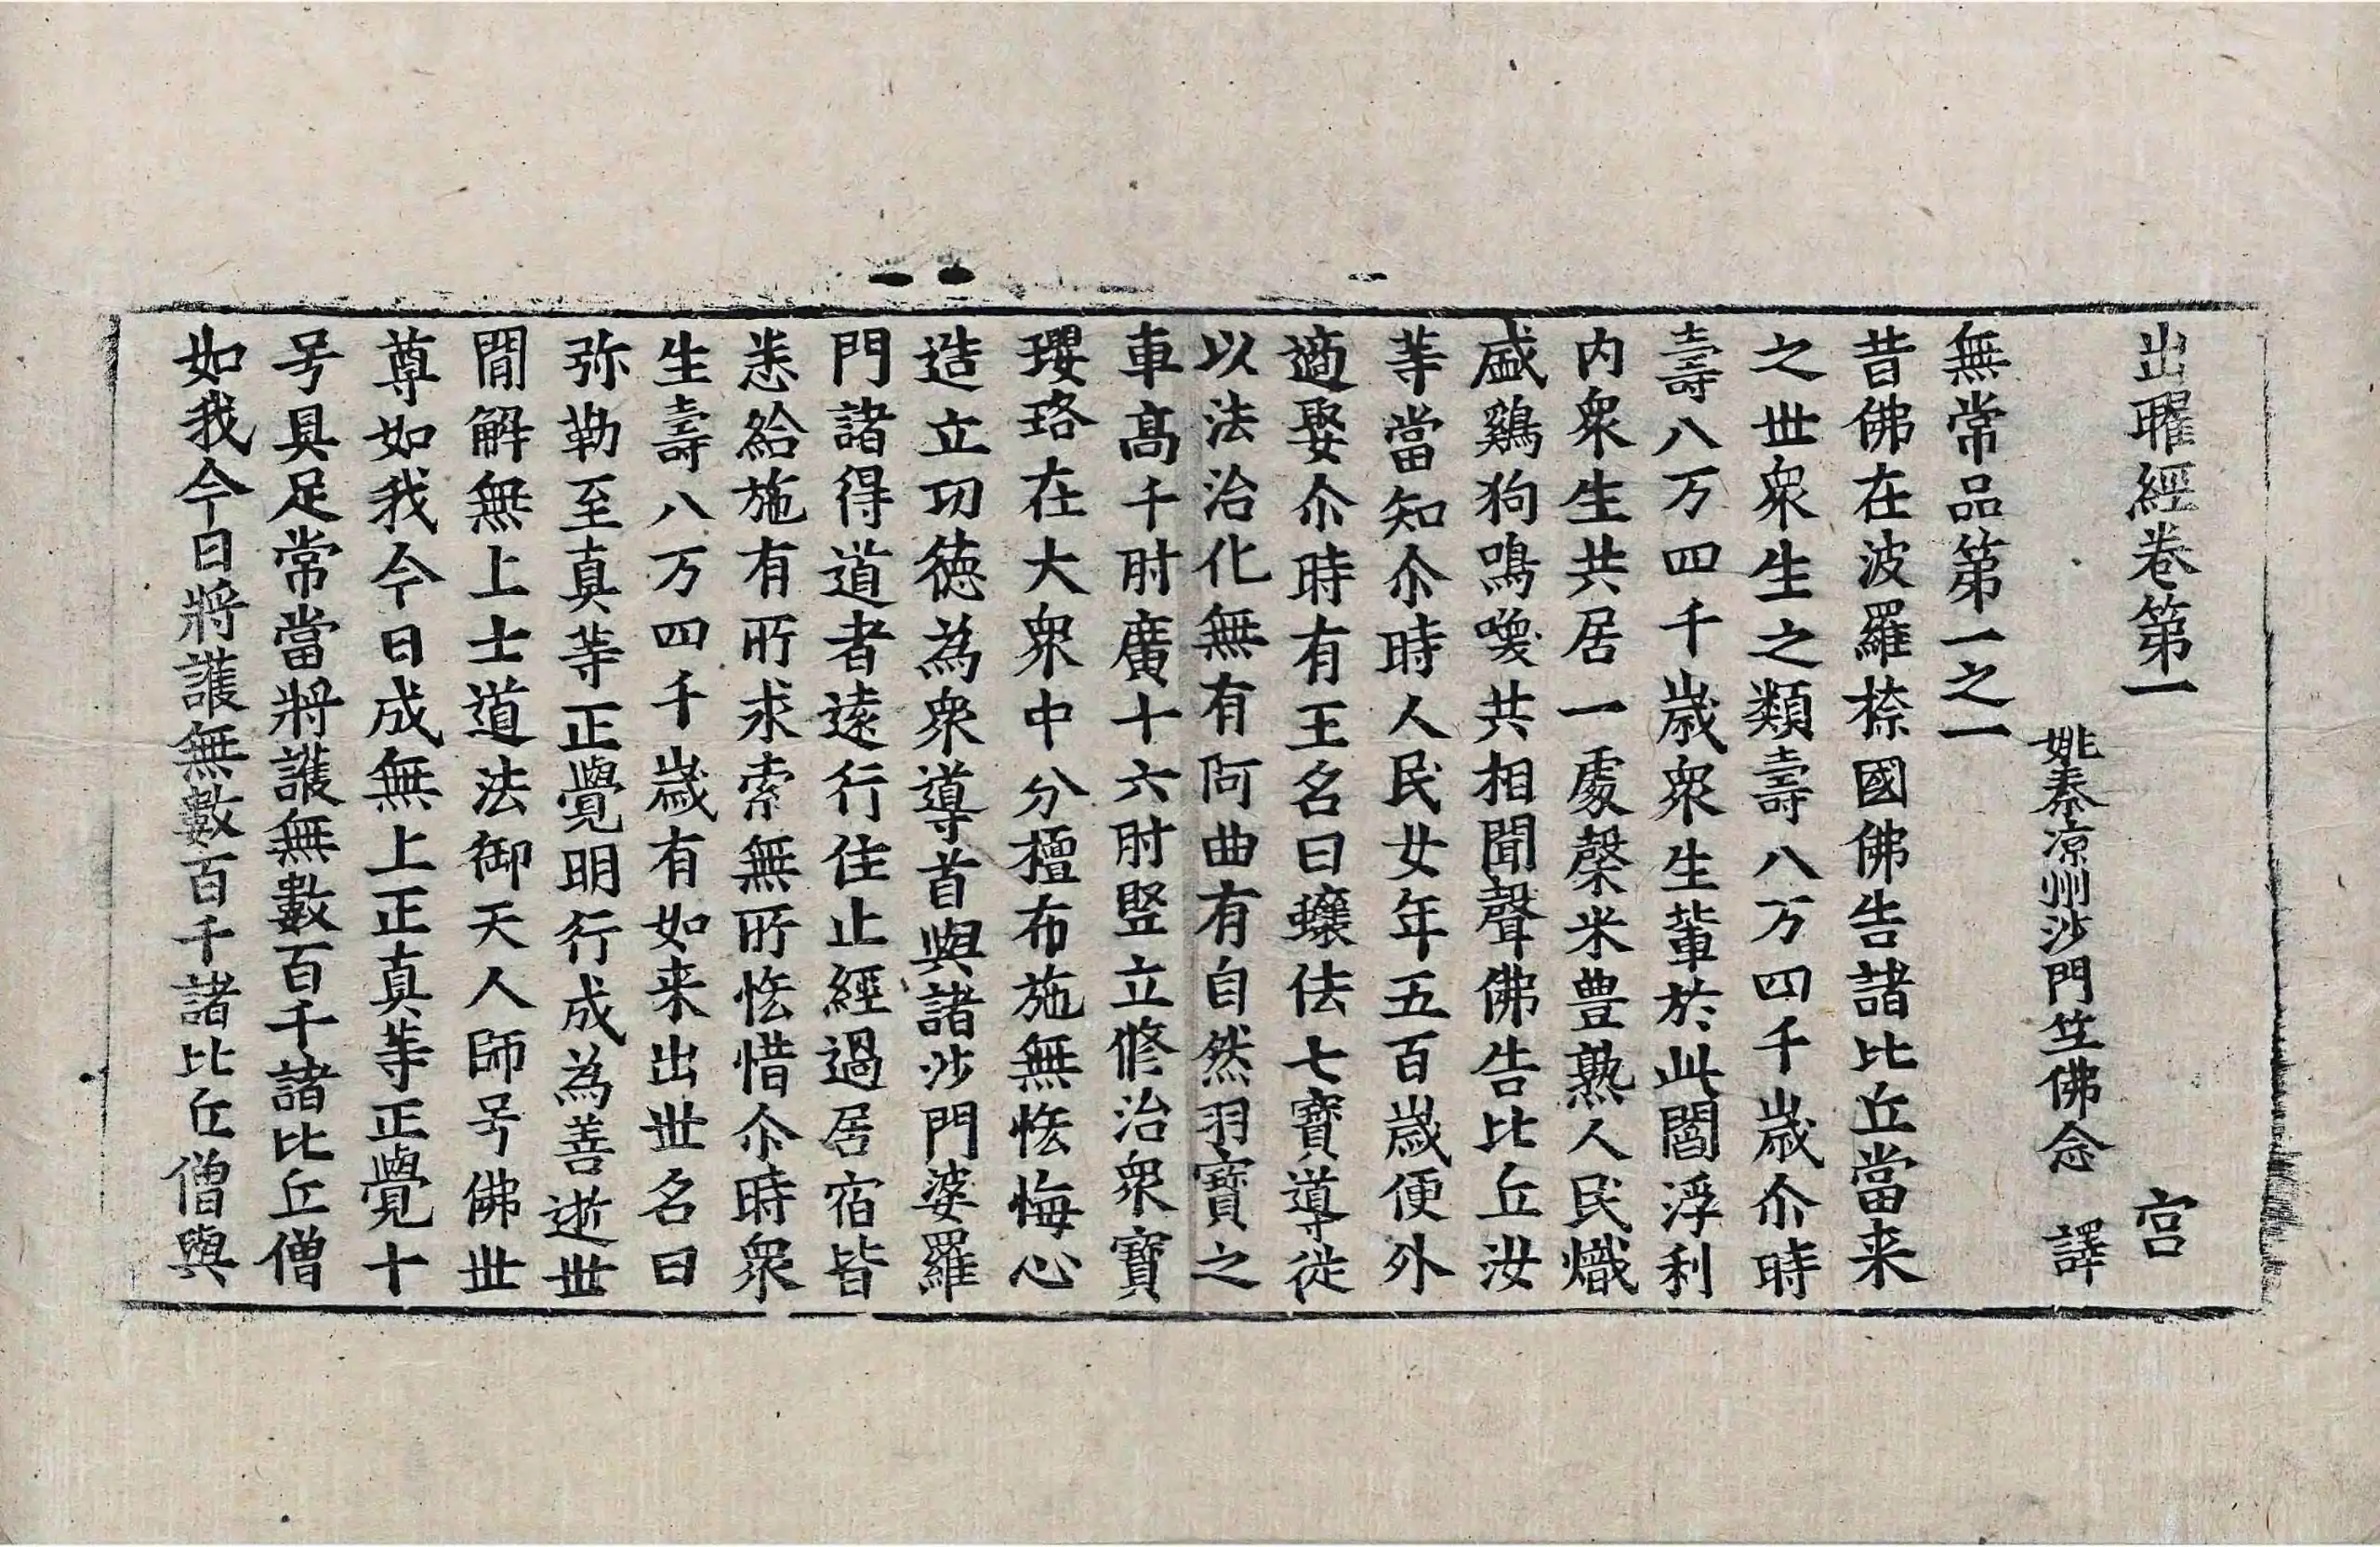 出曜經卷第一 宫
姚秦凉州沙門竺佛念 譯
無常品第一之一
昔佛在波羅㮈國佛告諸比丘當来
之世衆生之類壽八万四千歳尒時
壽八万四千歳衆生輩於此閻浮利
内衆生共居一處穀米豊熟人民熾
盛鷄狗鳴喚共相聞聲佛告比丘汝
等當知尒時人民女年五百歳便外
適娶尒時有王名曰蠰佉七寶導従
以法治化無有阿曲有自然羽寶之
車髙千肘廣十六肘竪立修治衆寶
瓔珞在大衆中分檀布施無恡悔心
造立功徳為衆導首與諸沙門婆羅
門諸得道者逺行住止經過居宿皆
悉給施有所求索無所恡惜尒時衆
生壽八万四千歳有如来出世名曰
弥勒至真等正覺明行成為善逝世
間解無上士道法御天人師号佛世
尊如我今日成無上正真等正覺十
号具足常當將護無數百千諸比丘僧
如我今日將護無數百千諸比丘僧與